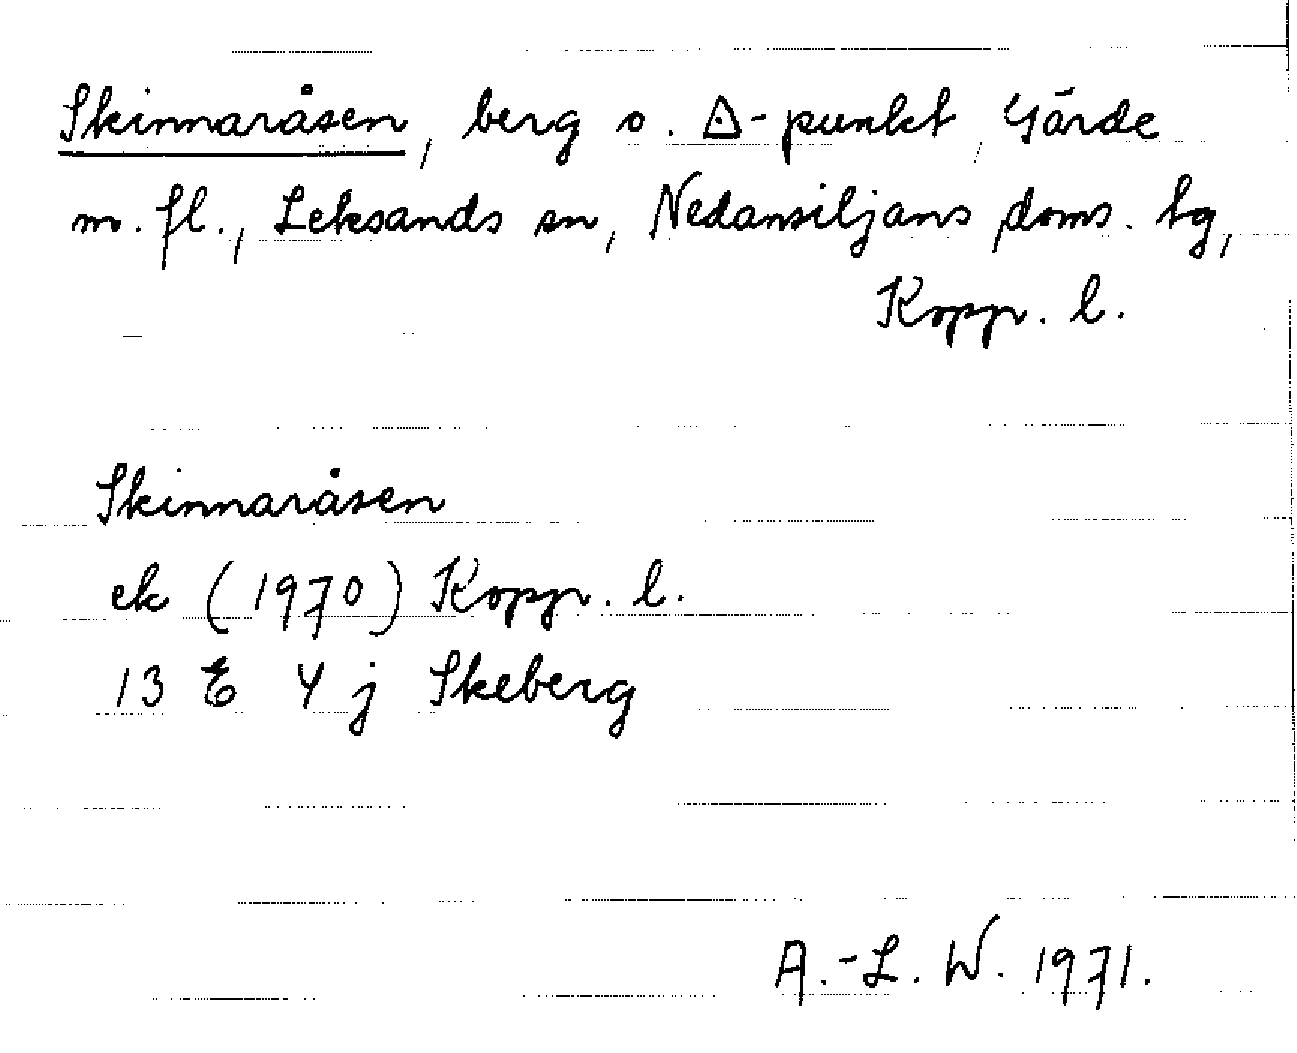 Skinnaråsen, berg o. ◬-punkt, Gärde
m. fl., Leksands sn, Nedansiljans doms. tg,
Kopp. l.
Skinnaråsen
ek (1970) Kopp. l.
13 E 4 j Skeberg
A.-L. W. 1971.